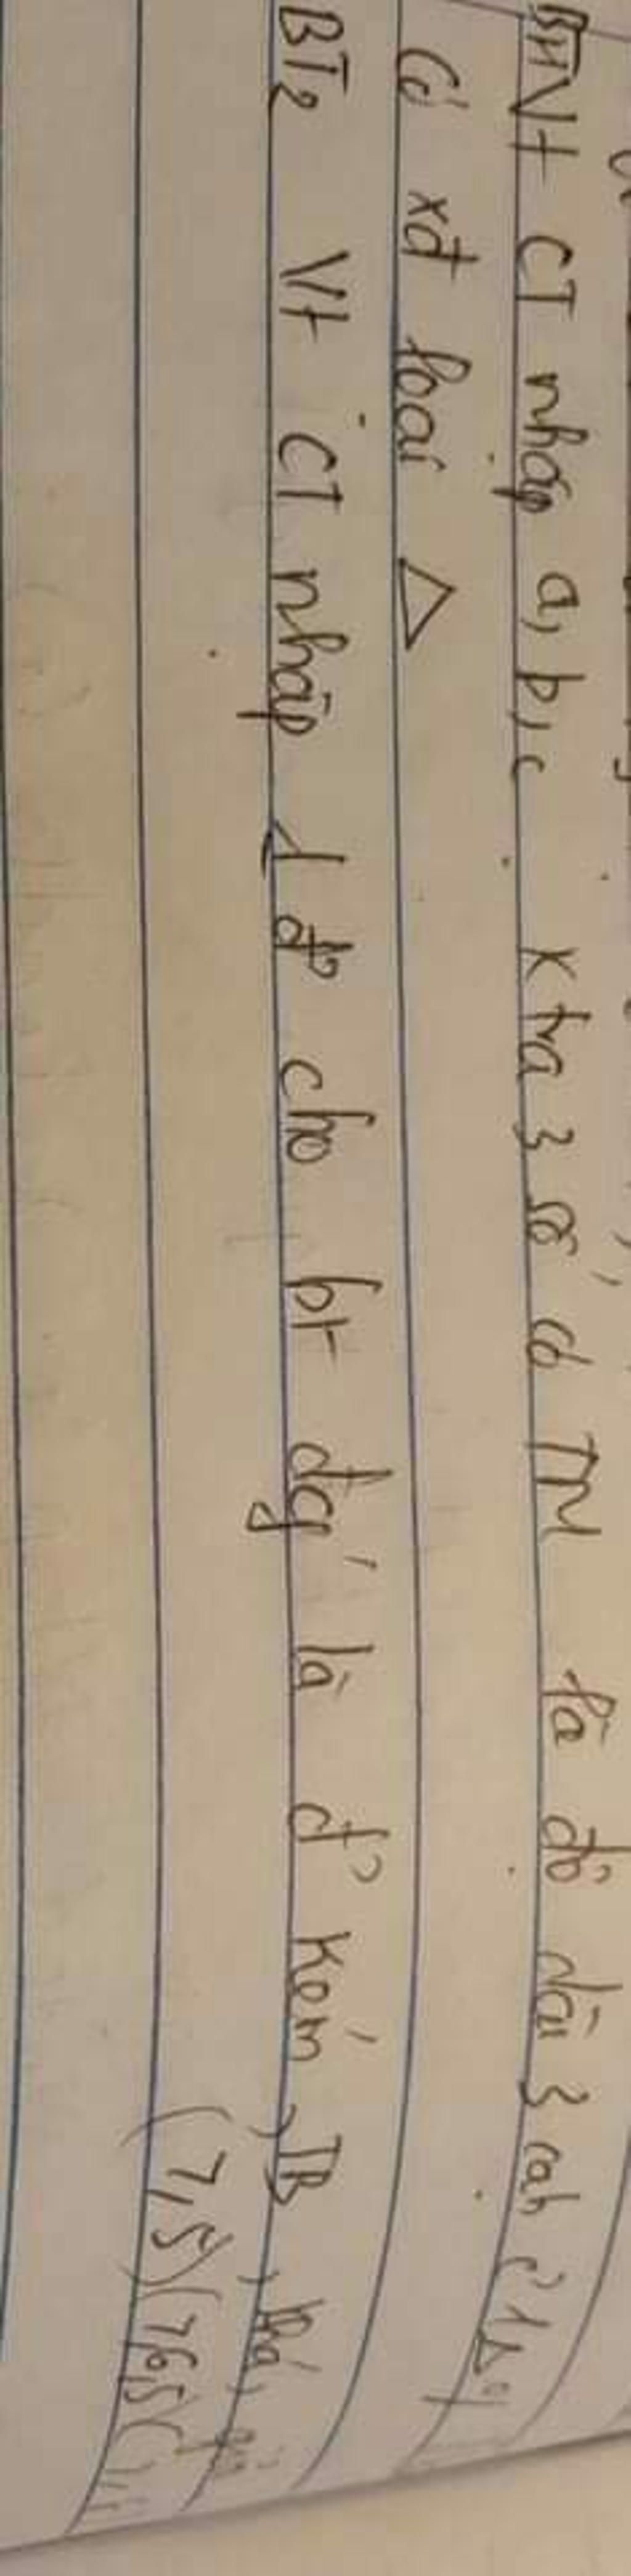 BT1 Vt CT nhập a, b, c ktra 3 số có TM là độ dài 3 cạh c̉ 1Δ 0/
Có xđ loại Δ
BT2 Vt CT nhập 1 đ̉ cho bt đcý là đ̉ kém, TB, khá, giỏi
(7,5) (76,5